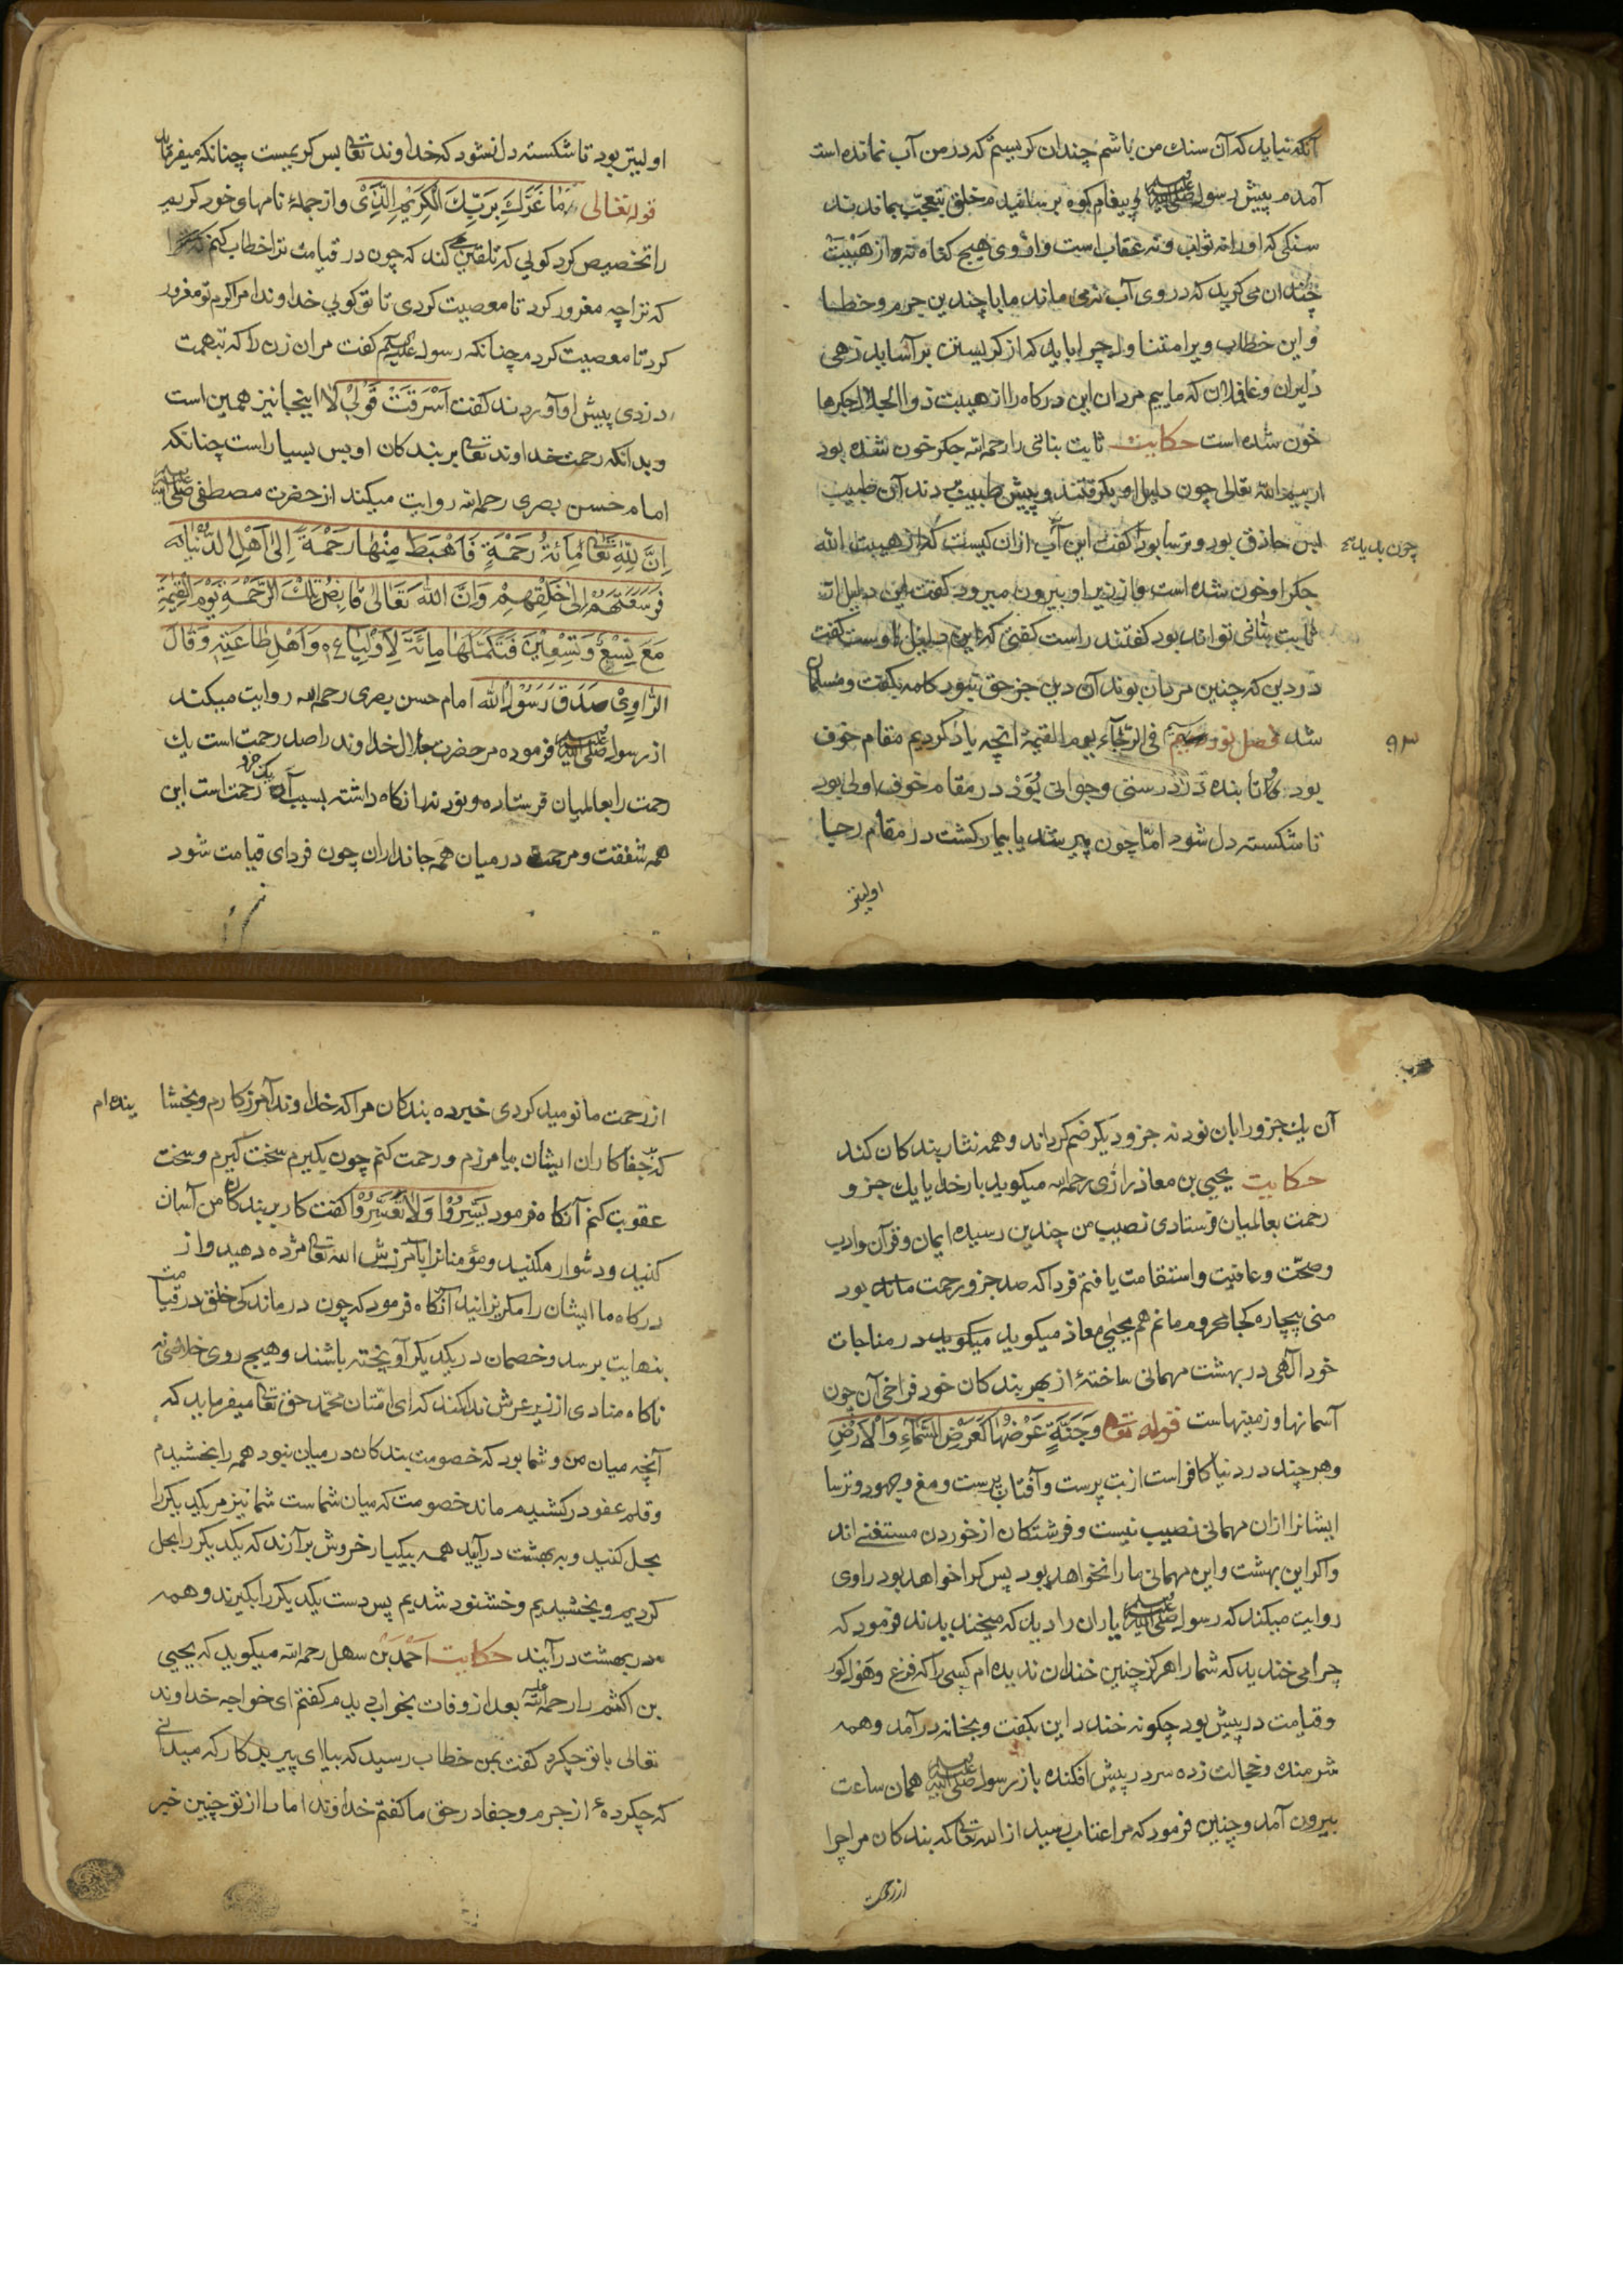 آنکه نباید که آن سنك من باشم چندان کریستم که در من آب نمانده است
آمدم پیش رسول صلی الله علیه وسلم و پیغام کوه برسانیدم خلق بتعجب بماندند
سنکی که او را نه ثواب و نه عقاب است و از وی هیچ کناه نه و از هیبت
چندان می کرید که در وی آب نمی ماند ما با چندین جرم و خطا
و این خطاب ویرا متناول چرا باید که از کریستن بر آساید زهی
دلیران و غافلان که ماییم مردان این درکاه را از هیبت ذو الجلال جکرها
خون شده است حکایت ثابت بنانی را رحمه الله جکر خون شده بود
از بیم الله تعالی چون دلیل او بکرفتند و پیش طبیب بردند آن طبیب
بس حاذق بود و ترسا بود کفت این آب از ان کیست که از هیبت الله
چون بدید
جکر او خون شده است و از زیر او بیرون میرود کفت این دلیل از
ثابت بنانی تواند بود کفتند راست کفتی که این دلیل اوست کفت
در دین که چنین مردان بوند آن دین جز حق نبود کلمه بکفت و مسلمان
شد فصل نود و سیم فی الرجاء یوم القیمة انچه یاد کردیم مقام خوف
۹۳
بود تا بنده در تن درستی و جوانی بود در مقام خوف اولی بود
تا شکسته دل شود امّا چون پیر شد یا بیمار کشت در مقام رجا
اولیتر
اولیتر بود تا شکسته دل نشود که خداوند تعالی بس کریمست چنانکه میفرماید
قوله تعالی مَا غَرَّكَ بِرَبِّكَ الْكَرِيْمِ الَّذِيْ و از جملهٔ نامهای خود کریم
را تخصیص کرد کویی که تلقین می کند که چون در قیامت ترا خطاب کنم
که ترا چه مغرور کرد تا معصیت کردی تا تو کویی خداوندا مرا کرم تو مغرور
کرد تا معصیت کردم چنانکه رسول علیه السلم کفت مر ان زن را که بتهمت
دزدی پیش او آوردند کفت اَسَرَقْتِ قُوْلِيْ لَا اینجا نیز همین است
و بدانکه رحمت خداوند تعالی بر بندکان او بس بسیار است چنانکه
امام حسن بصری رحمه الله روایت میکند از حضرت مصطفی صلی الله علیه وسلم
اِنَّ لِلّٰهِ تَعَالٰی مِائَةُ رَحْمَةٍ فَاَهْبَطَ مِنْهَا رَحْمَةً اِلٰى اَهْلِ الدُّنْيَا
فَوَسَعَتْهُمْ اِلٰى خَلْقِهِمْ وَاِنَّ اللّٰهَ تَعَالٰى قَابِضُ تِلْكَ الرَّحْمَةِ يَوْمَ الْقِيٰمَةِ
مَعَ تِسْعٍ وَتِسْعِيْنَ فَتَكَمَّلَهَا مِائَةً لِاَوْلِيَائِهٖ وَاَهْلِ طَاعَتِهٖ وَقَالَ
الرَّاوِيْ صَدَقَ رَسُوْلُ اللّٰه امام حسن بصری رحمه الله روایت میکند
از رسول صلی الله علیه وسلم فرموده مر حضرت جلال خداوند را صد رحمت است یك
رحمت را بعالمیان فرستاده و نود نه باز نکاه داشته بسبب آن یک جزو رحمت است این
همه شفقت و مرحمت در میان همه جانداران چون فردای قیامت شود
آن یك جزو را بان نود نه جزو دیکر ضم کرداند و همه نثار بندکان کند
حکایت یحیی بن معاذ رازی رحمه الله میکوید بار خدایا یك جزو
رحمت بعالمیان فرستادی نصیب من چندین رسید ایمان و قرآن و ادب
و صحّت و عافیت و استقامت یافتم فردا که صد جزو رحمت ماند بود
منی بیچاره کجا محروم مانم هم یحیی معاذ میکوید میکوید در مناجات
خود الهی در بهشت مهمانی ساختهٔ از بهر بندکان خود فراخی آن چون
آسمانها و زمینهاست قوله تعالی وَجَنَّةٍ عَرْضُهَا كَعَرْضِ السَّمَآءِ وَالْاَرْضِ
و هر چند در دنیا کافر است از بت پرست و آفتاب پرست و مغ و جهود و ترسا
ایشانرا از ان مهمانی نصیب نیست و فرشتکان از خوردن مستغنی اند
و اکر این بهشت و این مهمانی ما را نخواهد بود پس کرا خواهد بود راوی
روایت میکند که رسول صلی الله علیه وسلم یاران را دید که میخندیدند فرمود که
چرا می خندید که شما را هرکز چنین خندان ندیده ام کسی را که فزع و هول کور
و قیامت در پیش بود چکونه خندد این بکفت و بخانه در آمد و همه
شرمنده و خجالت زده سر در پیش افکنده باز رسول صلی الله علیه وسلم همان ساعت
بیرون آمد و چنین فرمود که مرا عتاب رسید از الله تعالی که بندکان مرا چرا
از رحمت
از رحمت ما نومید کردی خبر ده بندکان مرا که خداوند آمرزکارم و بخشا
ینده ام
که جفاکاران ایشان بیامرزم و رحمت کنم چون بکیرم سخت کیرم و سخت
عقوبت کنم آنکاه فرمود يَسِّرُوْا وَلَا تُعَسِّرُوْا کفت کار بر بندکان من آسان
کنید و دشوار مکنید و مؤمنانرا بآمرزش الله تعالی مژده دهید و از
درکاه ما ایشان را مکریزانید آنکاه فرمود که چون درماندکی خلق در قیامت
بنهایت برسد و خصمان در یکدیکر آویخته باشند و هیچ روی خلاصی نه
ناکاه منادی از زیر عرش ندا کند که ای امّتان محمّد حق تعالی میفرماید که
آنچه میان من و شما بود که خصومت بندکان در میان نبود همه را بخشیدم
و قلم عفو در کشیدم ماند خصومت که میان شماست شما نیز مر یکدیکر را
بحل کنید و به بهشت در آیید همه بیکبار خروش بر آرند که یکدیکر را بحل
کردیم و بخشیدیم و خشنود شدیم پس دست یکدیکر را بکیرند و همه
در بهشت در آیند حکایت احمد بن سهل رحمه الله میکوید که یحیی
بن اکثم را رحمة الله علیه بعد از وفات بخواب دیدم کفتم ای خواجه خداوند
تعالی با تو چکرد کفت بمن خطاب رسید که بیا ای پیر بدکار که میدانی
که چکردهٔ از جرم و جفا در حق ما کفتم خداوندا ما را از تو چنین خبر